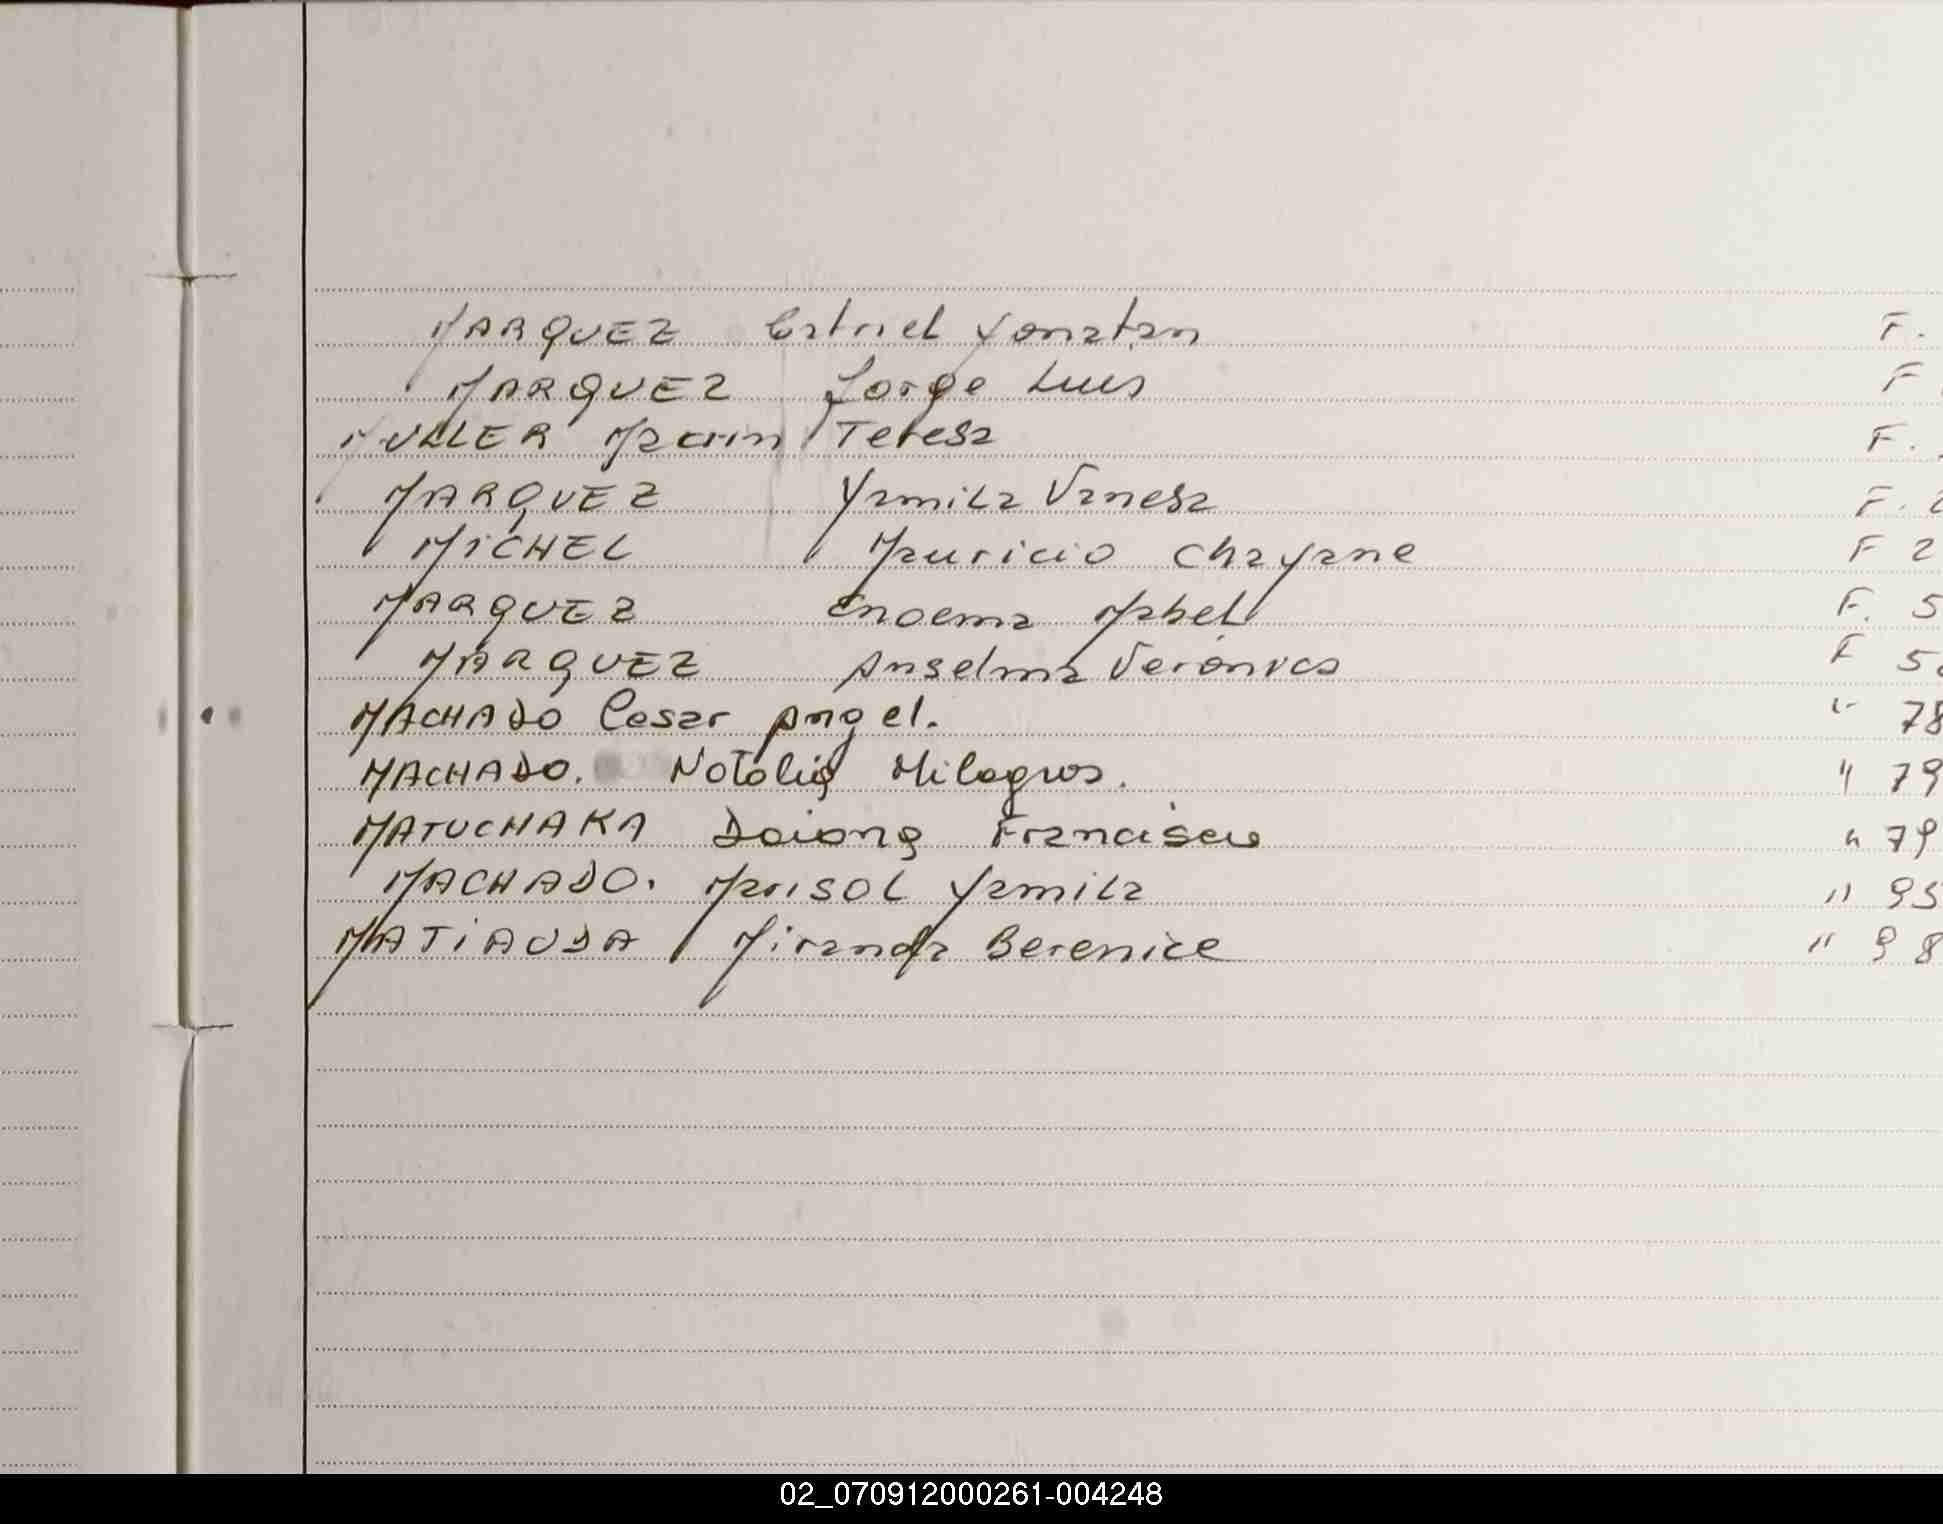 MARQUEZ Gabriel Yonatan F.
MARQUEZ Jorge Luis F
MULLER Teresa F.
MARQUEZ Yamila Vanesa F. 2
MICHEL Mauricio Chayane F 2
MARQUEZ Enoema Mabel F. 5
MARQUEZ Anselma Verónica F 5
MACHADO Cesar Angel. " 78
MACHADO. Natalia Milagros. " 79
MATUCHAKA Daiana Francisca " 79
MACHADO. Marisol Yamila " 95
MATIAUDA Miranda Berenice " 98
02_070912000261-004248